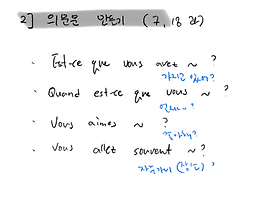 2] 의문문 만들기 (7, 18 과)
· Est-ce que vous avez ~ ?
가지고 있어?
· Quand est-ce que vous ~ ?
언제~ ?
· Vous aimez ~ ?
좋아해?
· Vous allez souvent ~ ?
자주가니 (장소) ?